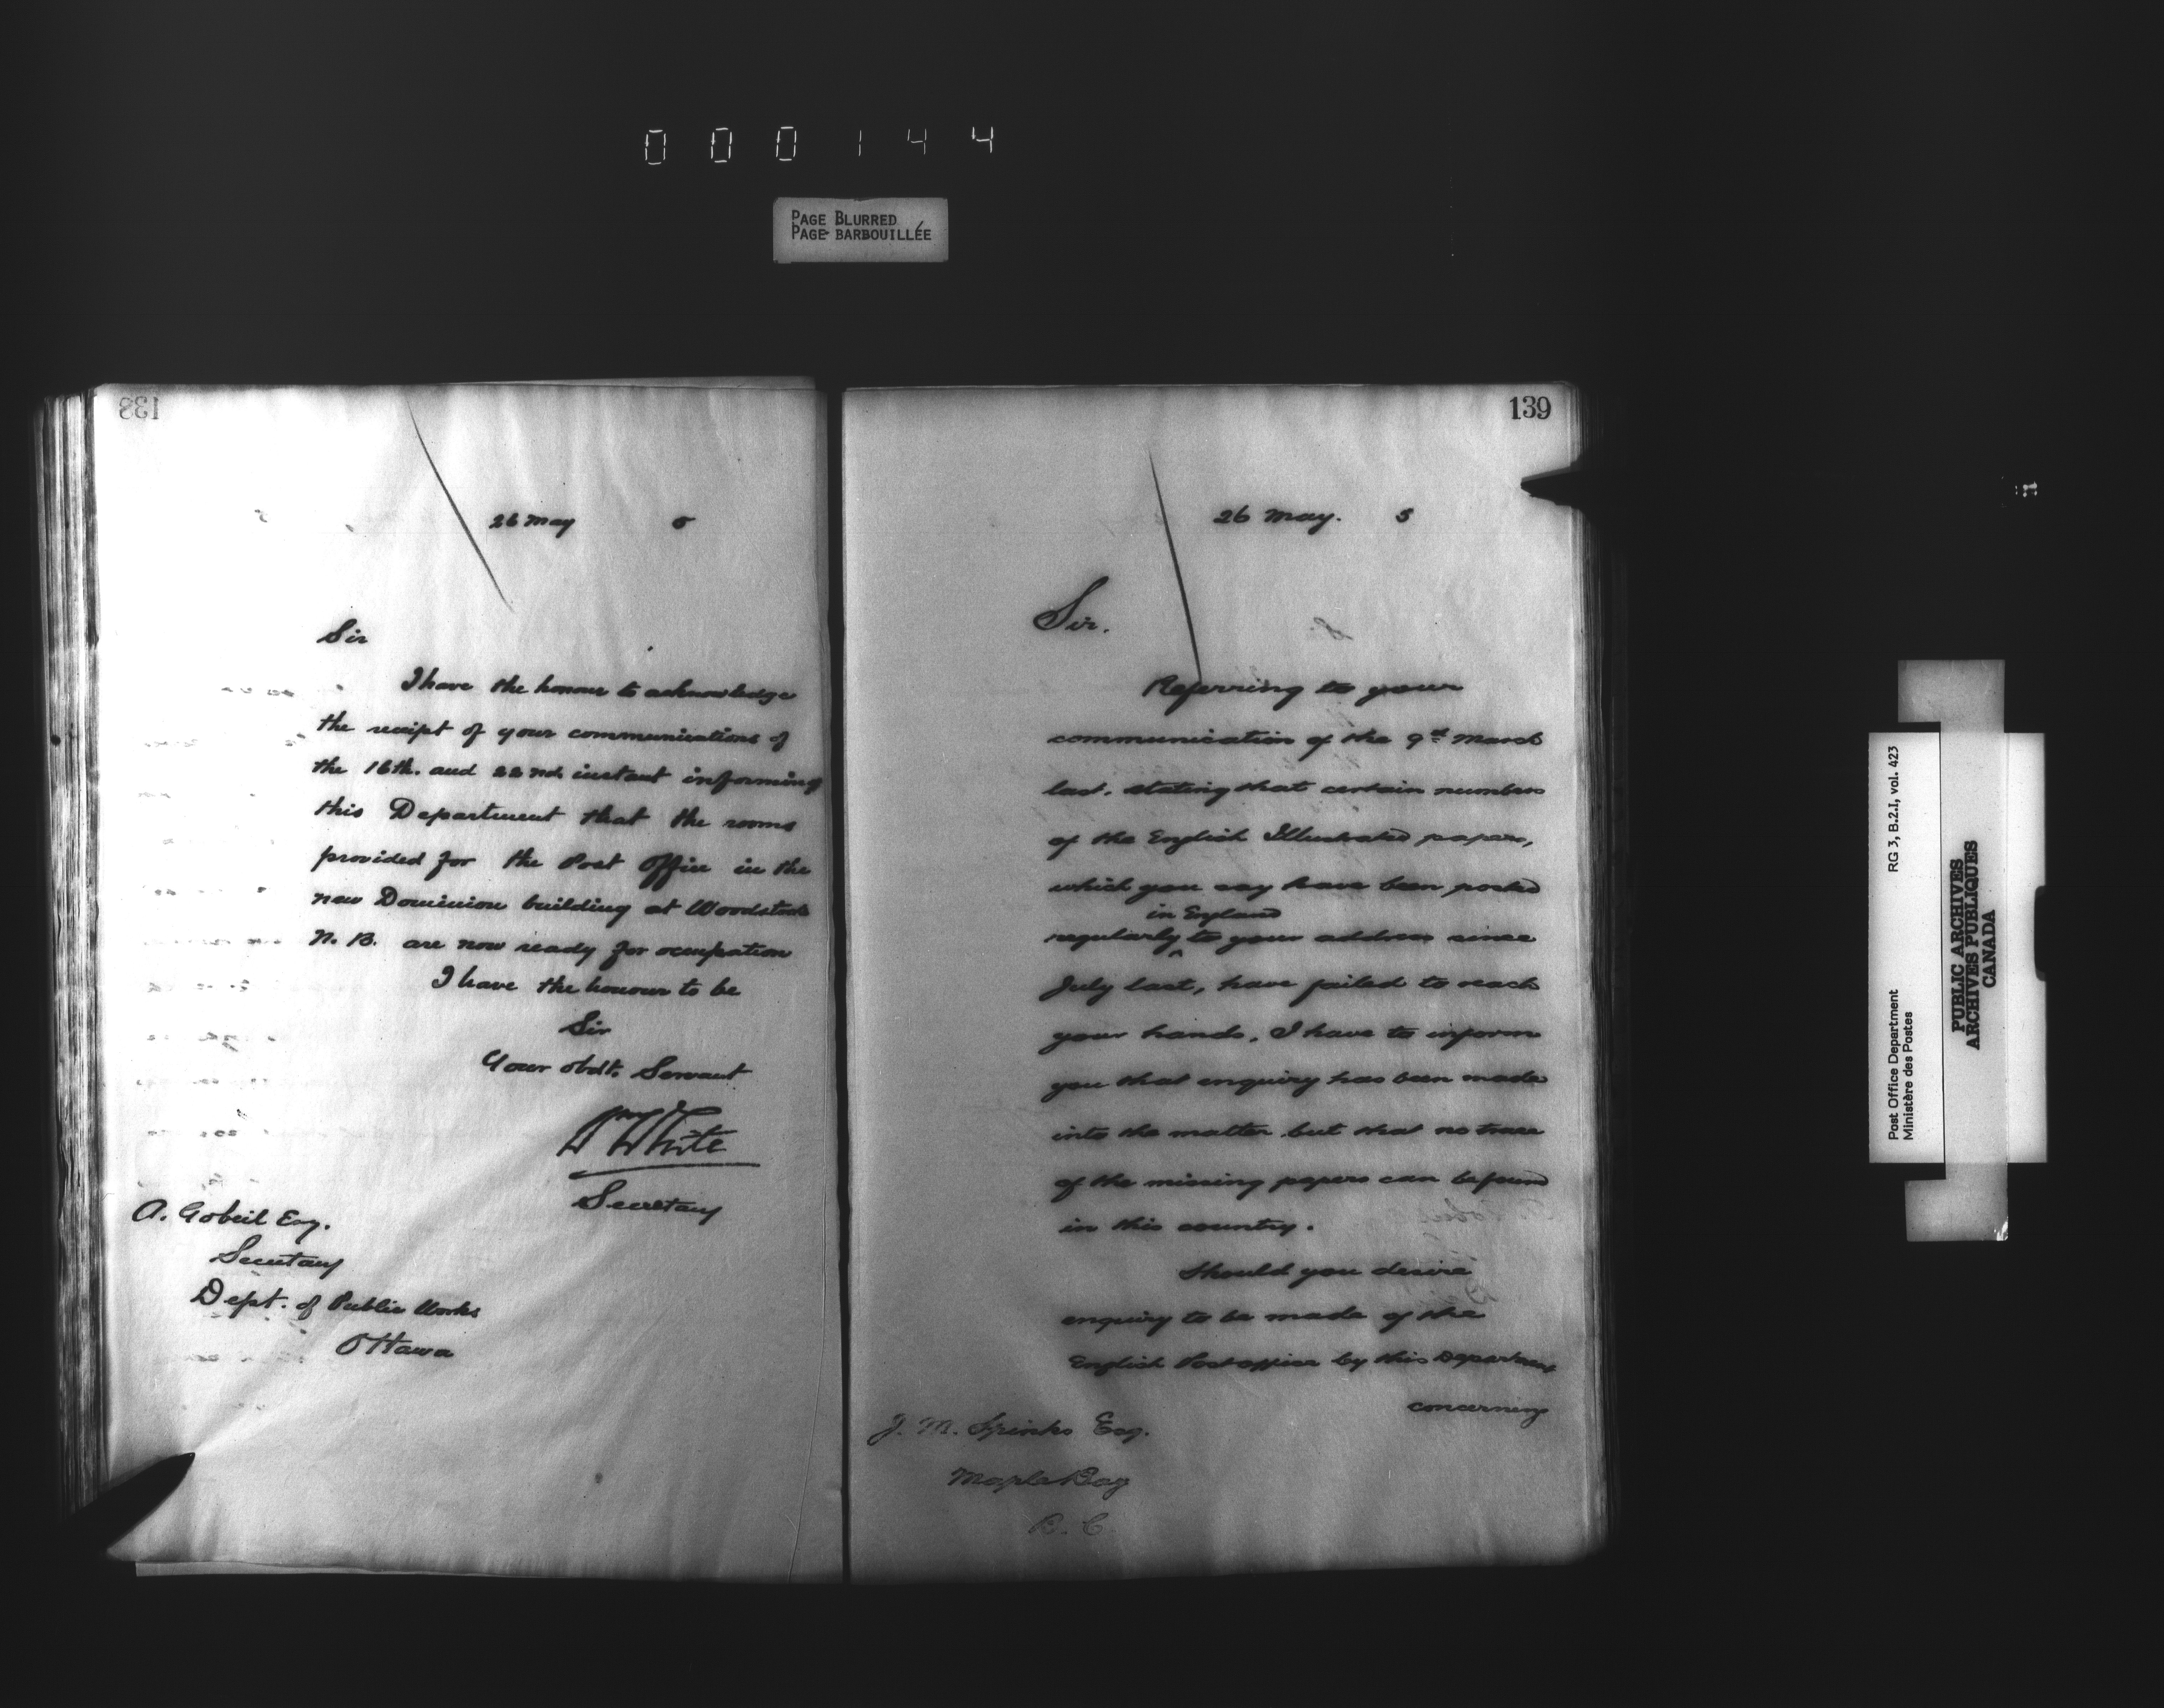 000144
PAGE BLURRED
PAGE BARBOUILLÉE
138
26 May 5
Sir
I have the honour to acknowledge
the receipt of your communications of
the 16th. and 22nd. instant informing
this Department that the rooms
provided for the Post Office in the
new Dominion building at Woodstock
N. B. are now ready for occupation
I have the honour to be
Sir
Your obdt. Servant
Wm White
Secretary
A. Gobeil Esq.
Secretary
Dept. of Public Works
Ottawa
139
26 May. 5
Sir.
Referring to your
communication of the 9th March
last, stating that certain numbers
of the English Illustrated papers,
which you say have been posted
in England
regularly ^ to your address since
July last, have failed to reach
your hands, I have to inform
you that enquiry has been made
into the matter but that no trace
of the missing papers can be found
in this country.
Should you desire
enquiry to be made of the
English Post office by this Department
concerning
J. M. Spinks Esq.
Maple Bay
B. C.
Post Office Department
Ministère des Postes
RG 3, B.2.I, vol. 423
PUBLIC ARCHIVES
ARCHIVES PUBLIQUES
CANADA